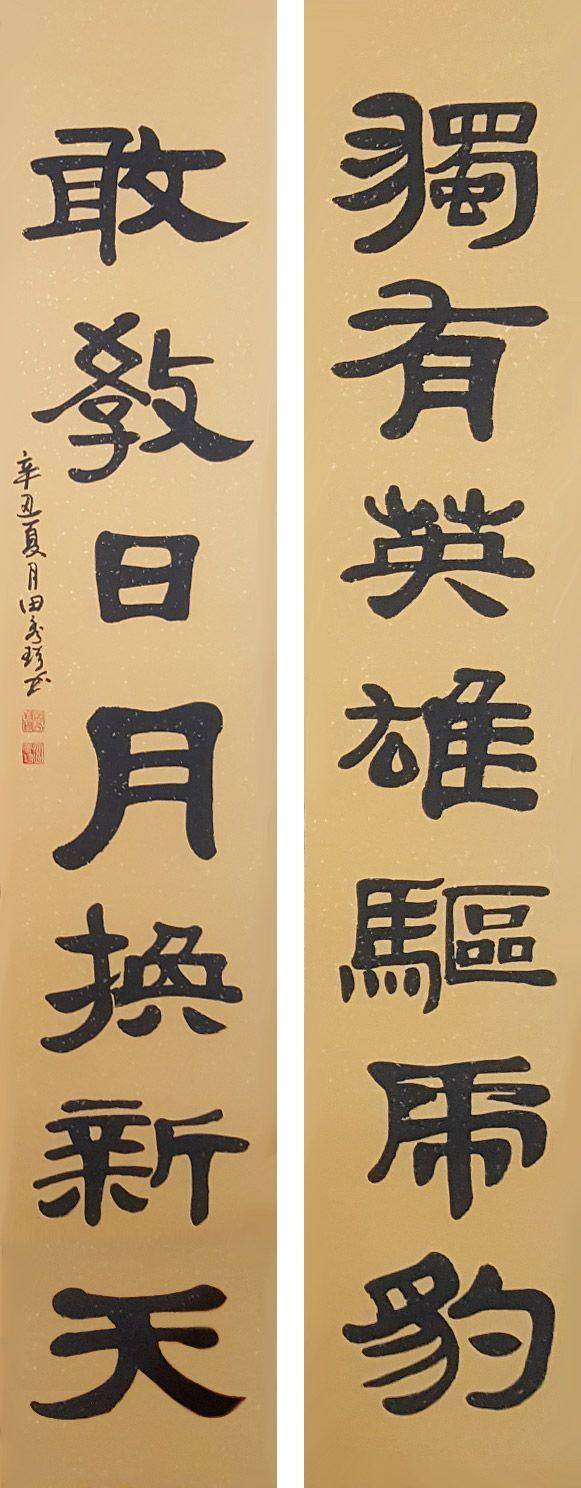 獨有英雄驅虎豹
敢教日月換新天
辛丑夏月田秀琦书